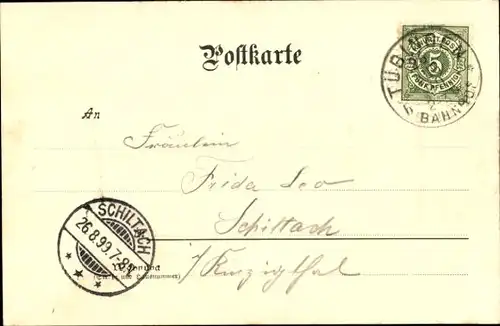 Postkarte
TÜBINGEN
BAHNHOF
5
An
Fräulein
Frida Leo
Schiltach
SCHILTACH
26.8.99.7-8
i/Kinzigthal
Wohnung
(Straße und Hausnummer)